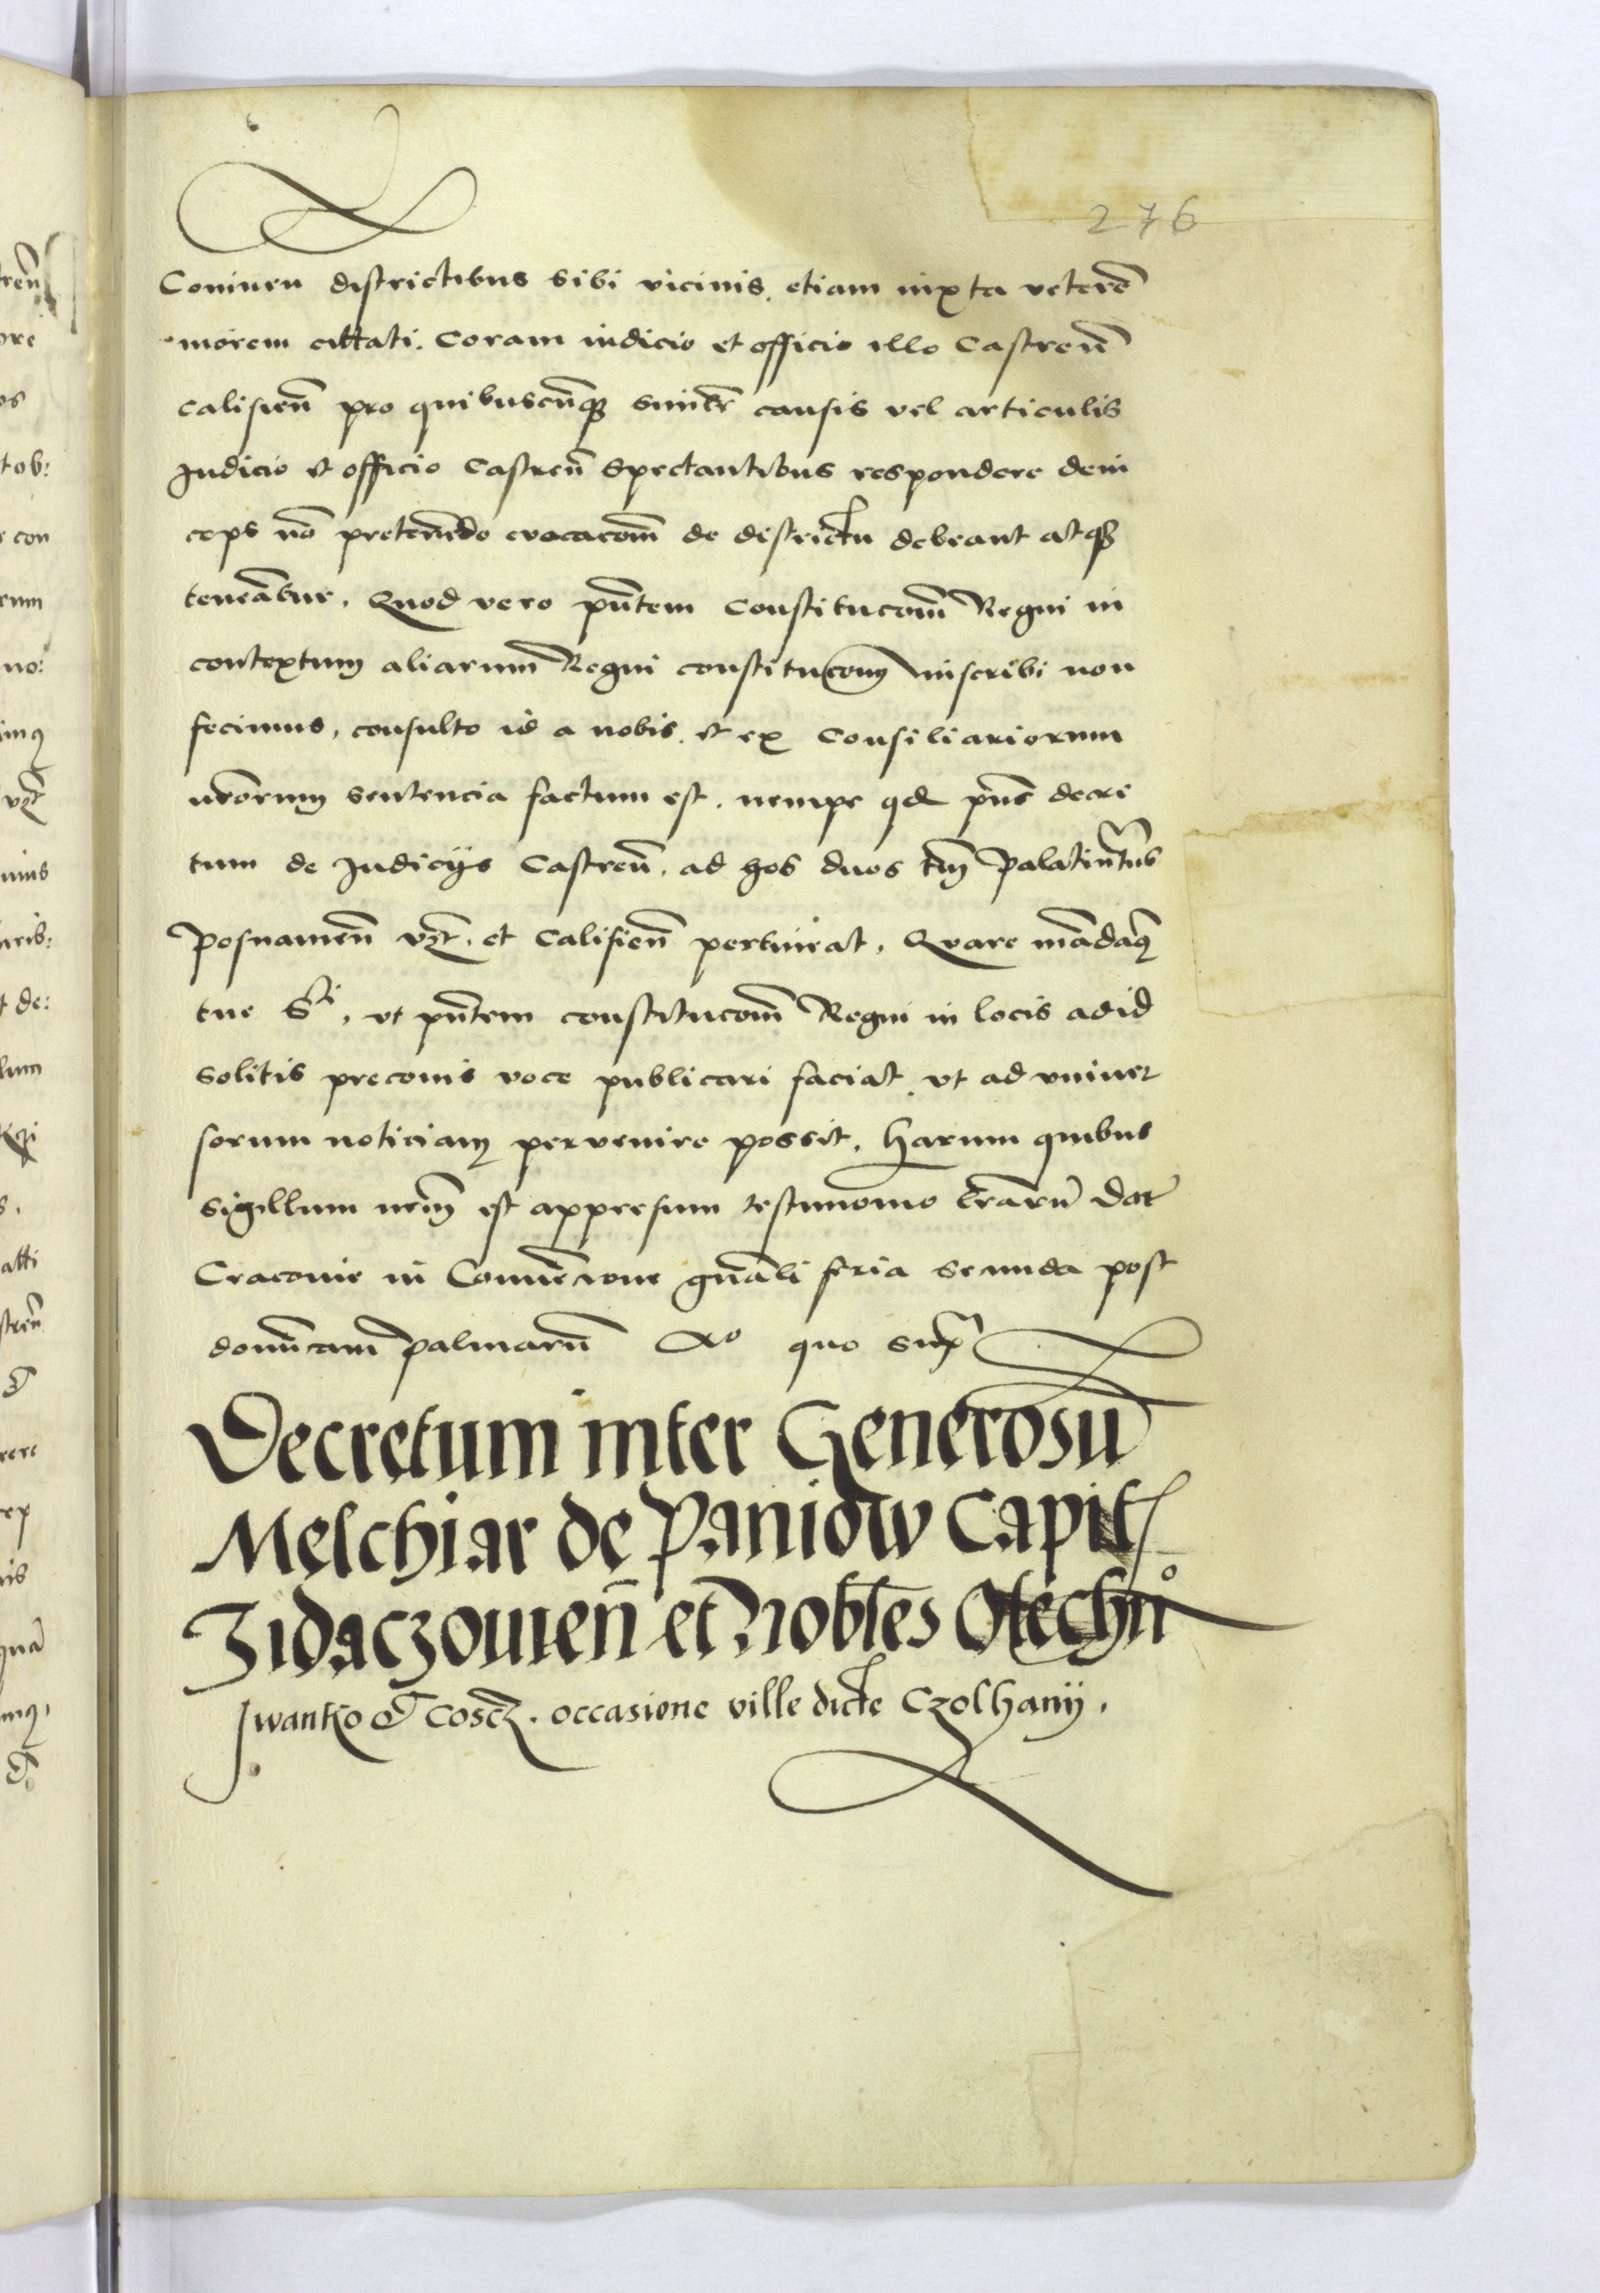 276
Coninen districtibus sibi vicinis. etiam iuxta veterē
morem cittati. Coram iudicio et officio illo Castreñ
calisieñ pro quibuscunq simlr causis vel articulis
Judicio et officio Castreñ spectantibus respondere dein
ceps nō pretendendo evocacoem de districtu debeant atq
teneātur. Quod vero pñtem Constitucoem Regni in
contextum aliarum Regni constitucom inscribi non
fecimus, consulto id a nobis et ex Consiliariorum
nrorum sentencia factum est. nempe qd pñs decre
tum de Judicijs Castreñ. ad hos duos tm palatinatus
posnanieñ vzt. et Calisieñ pertineat. Quare mādamus
tue S. vt pñtem constitucoem Regni in locis ad id
solitis preconis voce publicari faciat. vt ad vniuer
sorum noticiam pervenire possit. Harum quibus
sigillum nrm est appressum testimonio lrarum Dat
Cracovie in Convēcione gñali feria secunda post
dominicam palmarū Ao quo supra
Decretum inter Generosū
Melchiar de Paniow Capit
Zidaczouien̄ et Nobiles Otechno
Iwanko et Coscz. occasione ville dicte Czolhanij.